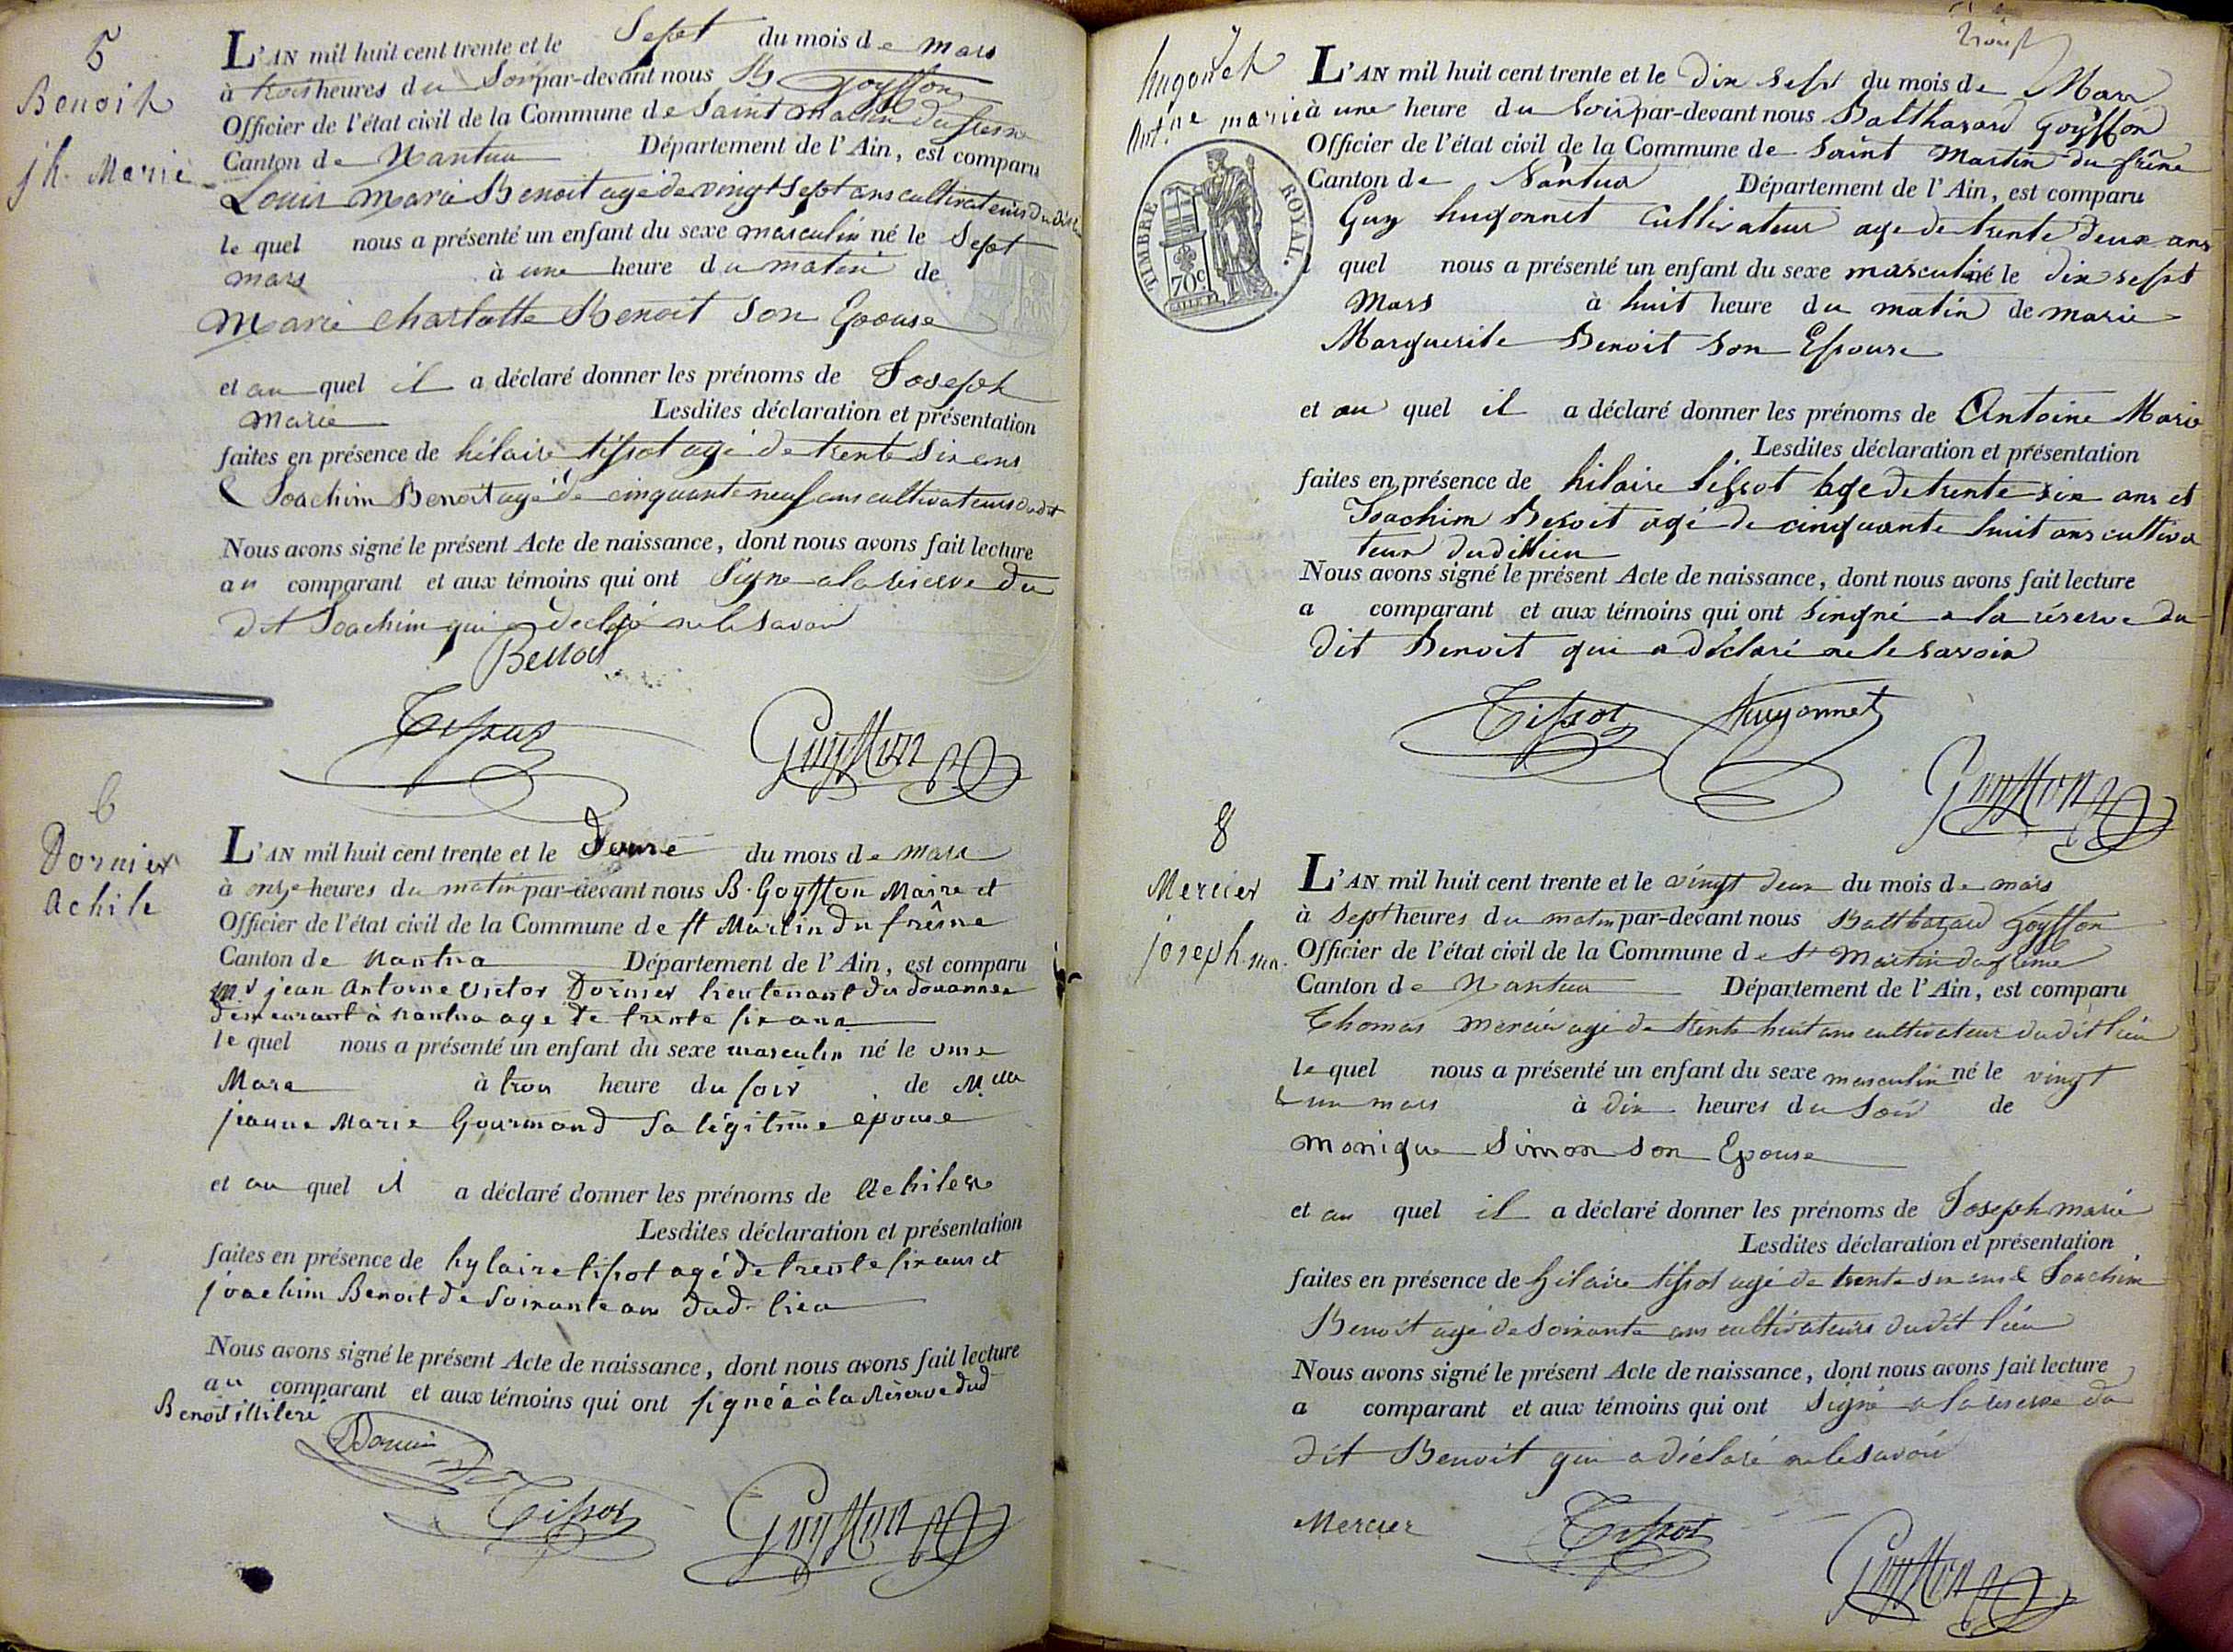 5
Benoit
jh. Marie
L'AN mil huit cent trente et le Sept du mois de mars
à trois heures du Soir par-devant nous B. Goyffon
Officier de l'état civil de la Commune de Saint Martin du fresne
Canton de Nantua Département de l'Ain, est comparu
Louis Marie Benoit agé de vingt sept ans cultivateurs du dit
le quel nous a présenté un enfant du sexe masculin né le Sept
mars à une heure du matin de
Marie Charlotte Benoit son Epouse
et au quel il a déclaré donner les prénoms de Joseph
Marie Lesdites déclaration et présentation
faites en présence de hilaire tissot agé de trente six ans
& Joachim Benoit agé de cinquante neuf ans cultivateurs dudit
Nous avons signé le présent Acte de naissance, dont nous avons fait lecture
au comparant et aux témoins qui ont Signe a la réserve du
dit Joachim qui a declaré ne le savoir
Benoit
Tissot Goyffon
6
Dornier
Achile
L'AN mil huit cent trente et le Douze du mois de mars
à onze heures du matin par-devant nous B. Goyffon Maire et
Officier de l'état civil de la Commune de st Martin du frêne
Canton de Nantua Département de l'Ain, est comparu
Mr jean Antoine Victor Dornier lieutenant du douannes
demeurant à nantua age de trente six ans
le quel nous a présenté un enfant du sexe masculin né le onze
Mars à trois heure du soir de Mme
jeanne Marie Gourmand sa légitime épouse
et au quel il a déclaré donner les prénoms de Achiles
Lesdites déclaration et présentation
faites en présence de hylaire tissot agé de trente six ans et
joachim Benoit de Soixante ans dud. lieu
Nous avons signé le présent Acte de naissance, dont nous avons fait lecture
au comparant et aux témoins qui ont signée à la Réserve dud
Benoit illiteré
Dornier
Tissot Goyffon
7
hugonet
Antne marie
TIMBRE ROYAL.
70c
L'AN mil huit cent trente et le dix sept du mois de Mars
à une heure du soir par-devant nous Balthazard Goyffon
Officier de l'état civil de la Commune de Saint Martin du frêne
Canton de Nantua Département de l'Ain, est comparu
Guy hugonnet Cultivateur age de trente deux ans
quel nous a présenté un enfant du sexe masculin né le dix sept
Mars à huit heure du matin de marie
Marguerite Benoit son Epouse
et au quel il a déclaré donner les prénoms de Antoine Marie
Lesdites déclaration et présentation
faites en présence de hilaire tissot age de trente six ans et
Joachim Benoit agé de cinquante huit ans cultiva
teur dudit lieu
Nous avons signé le présent Acte de naissance, dont nous avons fait lecture
a comparant et aux témoins qui ont singné a la réserve du
dit Benoit qui a déclaré ne le savoir
Tissot Hugonnet
Goyffon
8
Mercier
joseph ma.
L'AN mil huit cent trente et le vingt deux du mois de mars
à Sept heures du matin par-devant nous Balthazard Goyffon
Officier de l'état civil de la Commune de St Martin du frêne
Canton de Nantua Département de l'Ain, est comparu
Thomas mercier agé de trente huit ans cultivateur du dit lieu
le quel nous a présenté un enfant du sexe masculin né le vingt
& un mars à dix heures du Soir de
monique Simon son Epouse
et au quel il a déclaré donner les prénoms de Joseph marie
Lesdites déclaration et présentation
faites en présence de hilaire tissot agé de trente six ans & Joachim
Benoit agé de Soixante ans cultivateurs dudit lieu
Nous avons signé le présent Acte de naissance, dont nous avons fait lecture
a comparant et aux témoins qui ont Signé a la réserve du
dit Benoit qui a déclaré ne le savoir
Mercier Tissot
Goyffon